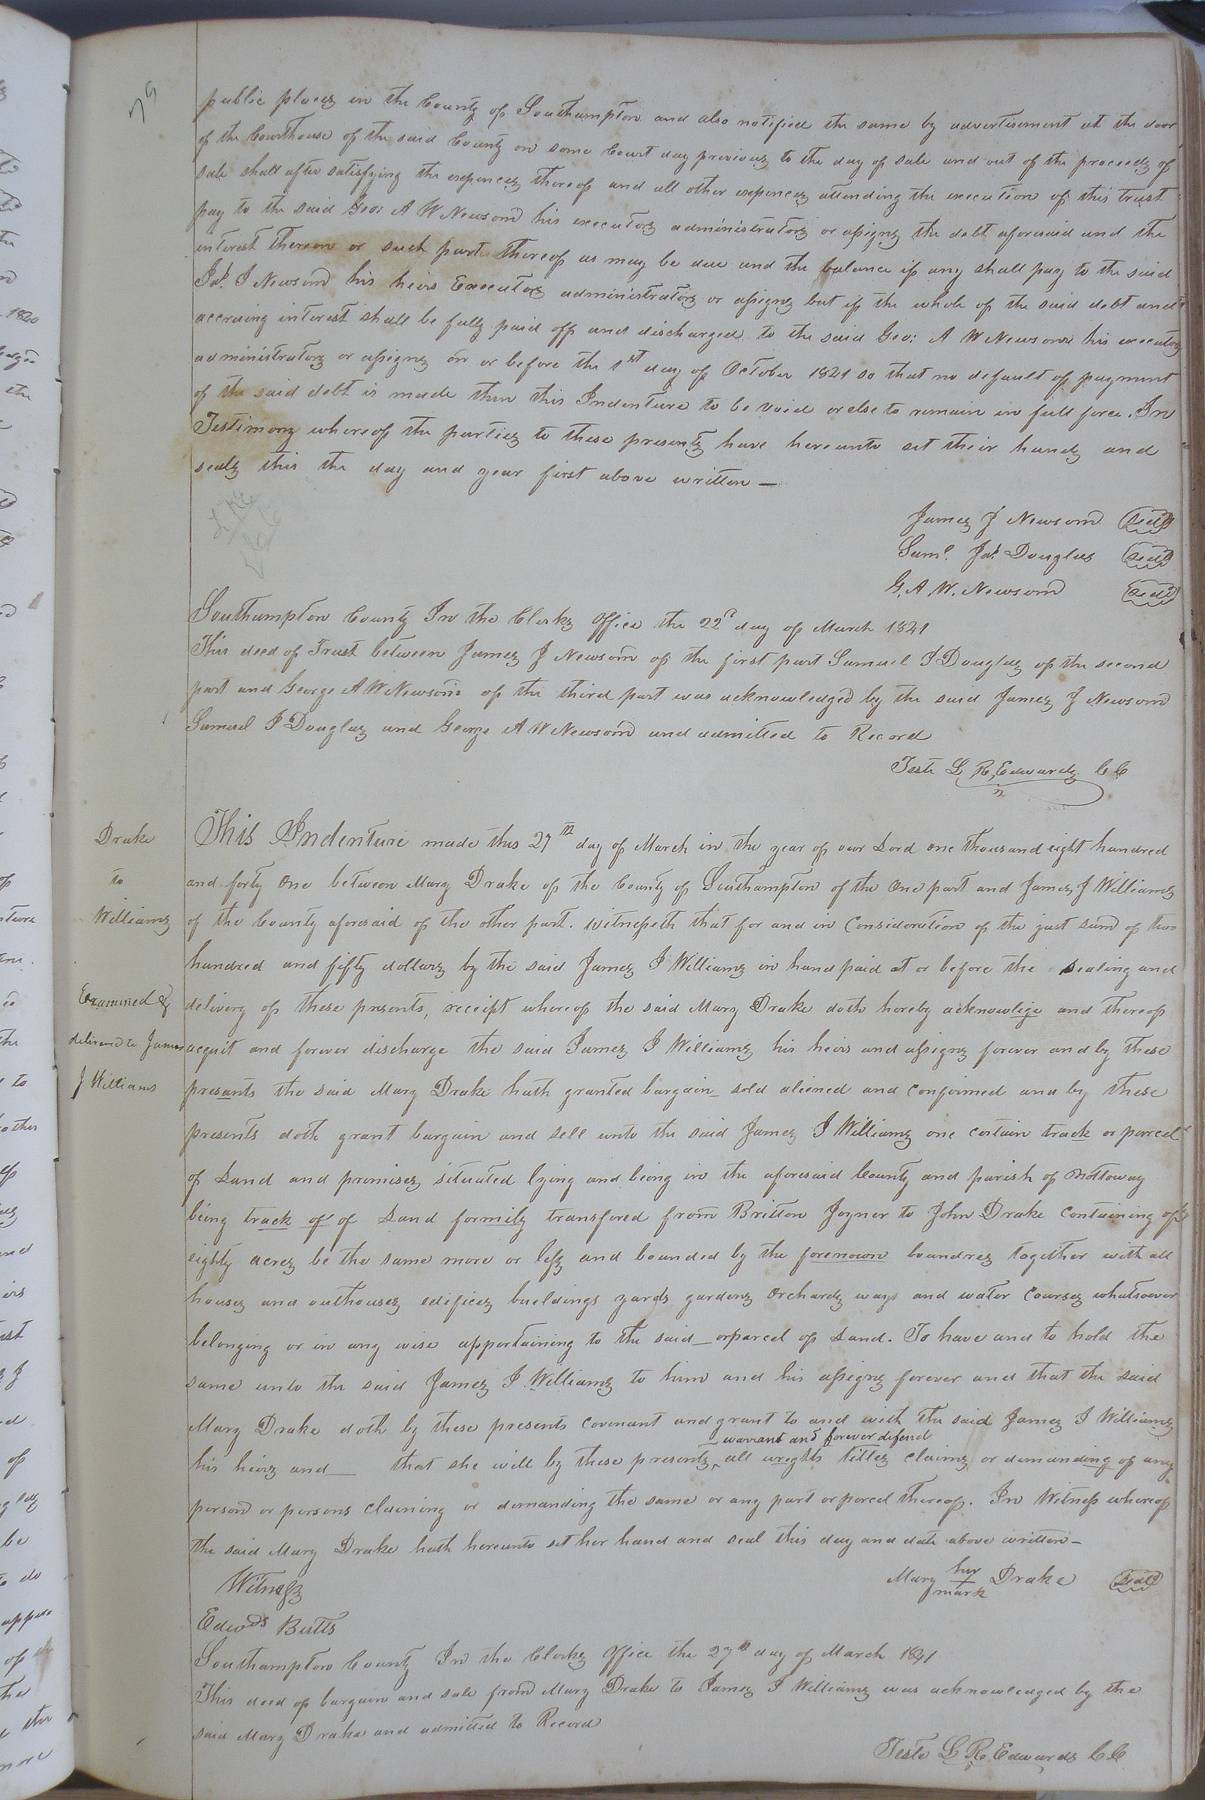 79
public places in the County of Southampton and also notified the same by advertisement at the door
of the Courthouse of the said County on some Court day previous to the day of sale and out of the proceeds of
sale shall after satisfying the expences thereof and all other expences attending the execution of this trust
pay to the said Geo: A W Newsom his executors administrators or assigns the debt aforesaid and the
interest thereon or such part thereof as may be due and the balance if any shall pay to the said
Jas. J Newsom his heirs Executors administrators or assigns but if the whole of the said debt and
accruing interest shall be fully paid off and discharged to the said Geo: A W Newsom his executors
administrators or assigns on or before the 1st day of October 1821 so that no default of payment
of the said debt is made then this Indenture to be void or else to remain in full force. In
Testimony whereof the parties to these presents have hereunto set their hands and
seals this the day and year first above written —
James J Newsom (Seal)
Saml. Jas. Douglas (Seal)
G. A. W. Newsom (Seal)
Southampton County In the Clerks Office the 22d day of March 1841
This deed of Trust between James J Newsom of the first part Samuel J Douglas of the second
part and George A W Newsom of the third part was acknowledged by the said James J Newsom
Samuel J Douglas and George A W Newsom and admitted to Record
Teste L. R. Edwards CC
Drake
to
Williams
Examined &
delivered to James
J Williams
This Indenture made this 27th day of March in the year of our Lord one thousand eight hundred
and forty One between Mary Drake of the County of Southampton of the One part and James J Williams
of the County aforesaid of the other part. Witnesseth that for and in Consideration of the just sum of two
hundred and fifty dollars by the said James J Williams in hand paid at or before the sealing and
delivery of these presents, receipt whereof the said Mary Drake doth hereby acknowlige and thereof
acquit and forever discharge the said James J Williams his heirs and assigns forever and by these
presants the said Mary Drake hath granted bargain_ sold aliened and confirmed and by these
presents doth grant bargain and sell unto the said James J Williams one certain track or parcel
of Land and promises situated lying and being in the aforesaid County and parish of Nottoway
being track of of Land formily transfered from Britton Joyner to John Drake Containing of
eighty acres be the same more or less and bounded by the forenown boundres together with all
houses and outhouses edifices buildings yards gardens Orchards ways and water Courses whatsoever
belonging or in any wise appertaining to the said _ orparcel of Land. To have and to hold the
same unto the said James J Williams to him and his assigns forever and that the said
Mary Drake doth by these presents covenant and grant to and with the said James J Williams
warrant and forever defend
his heirs and _ that she will by these presents, all wrights titles claims or demanding of any
person or persons claiming or demanding the same or any part or parcel thereof. In Witness whereof
the said Mary Drake hath hereunto set her hand and seal this day and date above written —
Mary her Drake (Seal)
mark
Witness
Edwds Butts
Southampton County In the Clerks Office the 27th day of March 1841
This deed of bargain and sale from Mary Drake to James J Williams was acknowledged by the
said Mary Drake and admitted to Record
Teste L. R. Edwards CC